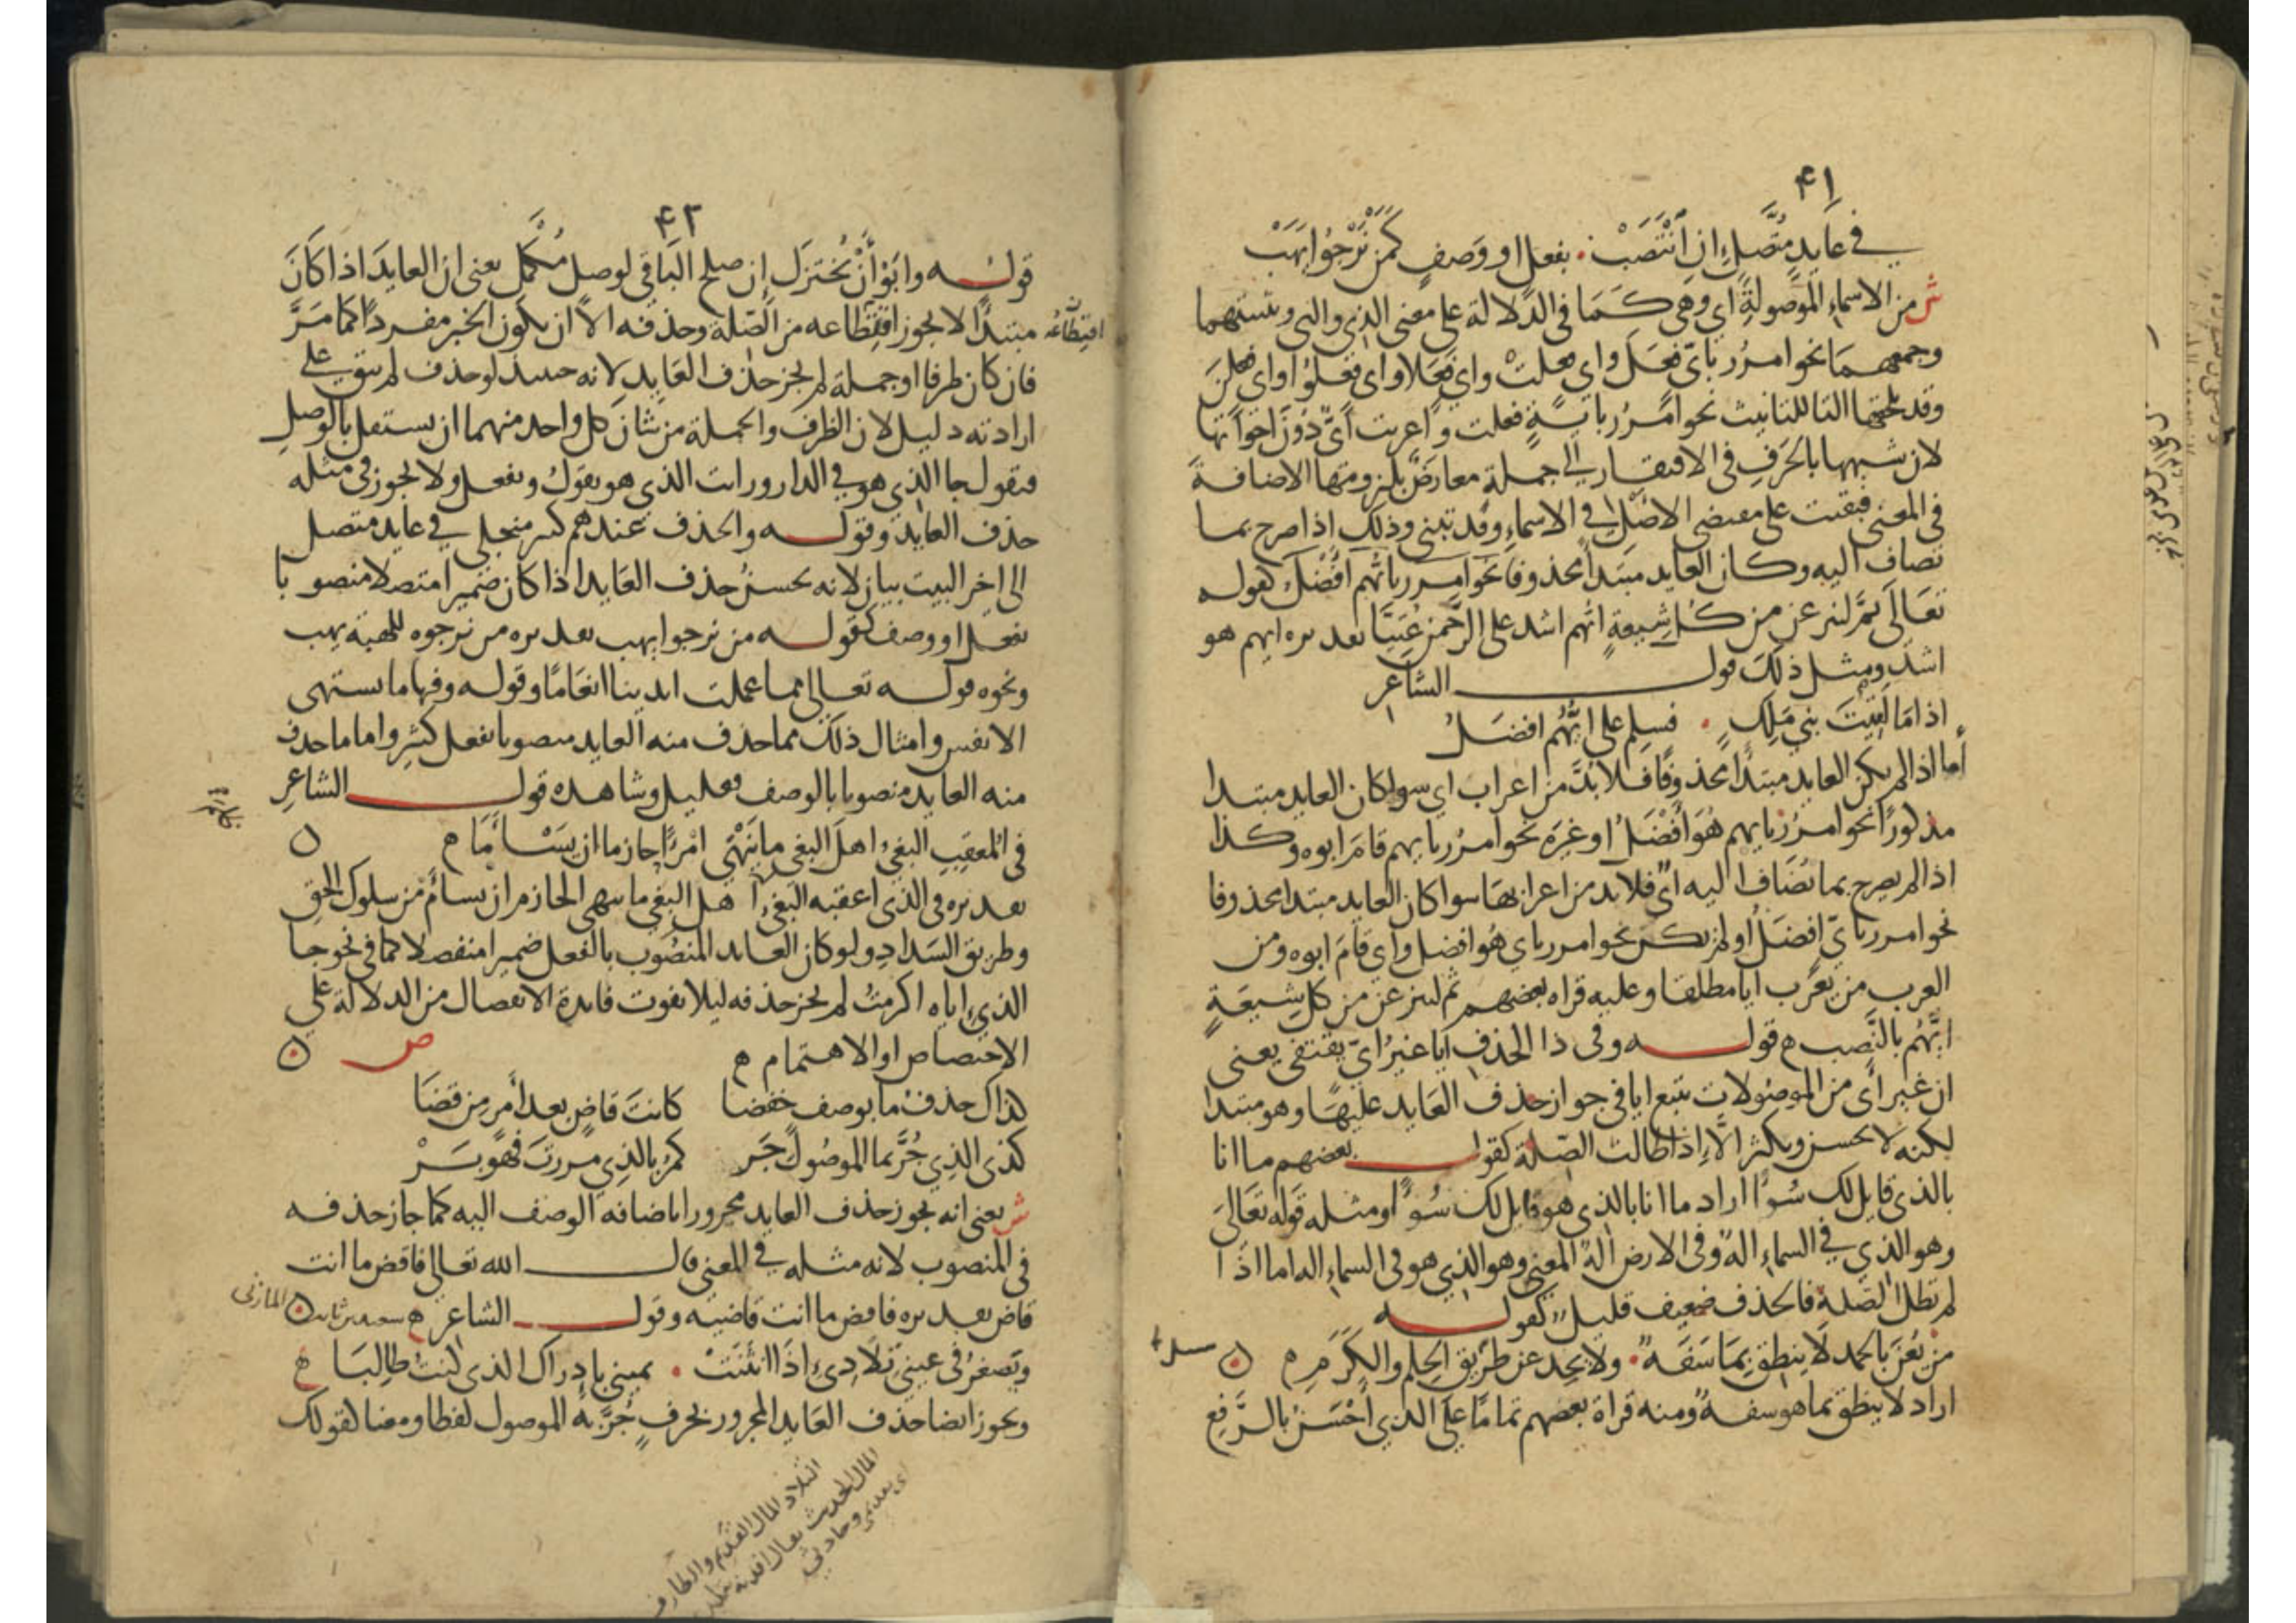 ٤١
في عَايدٍ مُتَّصلٍ اِنِ انْتَصَبْ . بفعلٍ او وَصفٍ كمَن نَرْجُوا يَهَبْ
ش من الاسماءِ الموصولةِ اي وهى كَمَا فى الدلالة على معنى الذى والتى وتثنيتهما
وجمعهمَا نحو امرُر باىّ فعَلَ واى فعلتْ واي فعَلا واى فعلُوا واى فعلنَ
وقد يلحقها التا للتانيث نحو امرُر بايةٍ فعلت واُعربت اىٌّ دُونَ اخواتها
لان شبهها بالحَرفِ فى الافتقار الى جملةٍ معارَضٌ بلزومها الاضافة
فى المعنى فبقيت على مقتضى الاصل في الاسماءِ وقد تبنى وذلك اذا صرح بما
تضاف اليه وكان العايد مبتدأً محذوفا نحو امرر بايُّهم افضَل كقوله
تعَالَى ثمَّ لننزعن من كلِّ شيعةٍ ايُّهم اشد على الرَّحمن عُتيًّا تقديره ايهم هو
اشد ومثل ذلكَ قول الشاعر
اذا مَا لقيتَ بني مَلِكٍ . فسلِم على ايُّهُم افضَلُ
أما اذا لم يكن العايد مبتدأً محذوفًا فلا بدَّ من اعراب اي سوا كان العايد مبتدا
مذكورًا نحو امرُر بايهم هُوَ أفضَلُ او غيرَه نحو امرُر بايهم قامَ ابوه وكذا
اذا لم يصرح بما تُضَاف اليه اىٌّ فلا بد من اعرابهَا سوا كان العايد مبتدا محذوفا
نحو امرر باىٍّ افضَلُ او لم يكن نحو امرر باي هُوَ افضل واى قامَ ابوه ومن
العرب من يعرب ايا مطلقا وعليه قراه بعضهم ثم لننزعن من كل شيعَةٍ
ايَّهُم بالنَّصب ه قولــه وفى ذا الحذف ايا غيرُ اىٍّ يقتفى يعنى
ان غير أى من الموصُولات يتبع ايا فى جواز حذف العَايد عليهَا وهو مبتدا
لكنه لا يحسن ويكثر الّا اذا طالت الصّلة كقول بعضهم ما انا
بالذى قايل لك سُوءًا اراد ما انا بالذى هو قايل لك سُوءًا ومثله قَوله تعَالىَ
وهو الذي في السماءِ الهٌ وفى الارض الهٌ المعنى وهو الذي هو فى السماءِ اله اما اذَا
لم تطل الصّلة فالحذف ضعيف قليلٌ كقولــه
من يُعنَ بالحمد لا ينطق بِمَا سَفَهٌ . ولا يحِد عن طَريق الحِلم والكَرَمِ ه
اراد لا ينطق بما هو سفهٌ ومنه قراة بعضهم تمامًا على الذي أحسَنُ بالرَّفع
٤٢
قولــه وابَوْا أنْ يُختزَل اِن صلح البَاقى لوصل مُكْمِل يعنى ان العايدَ اذا كانَ
مبتدأً لا يجوز اقتطاعه من الصّلة وحذفه الّا ان يكون الخبر مفردًا كما مَرَّ
اقتِطَاعُه
فان كان ظرفا او جملة لم يجز حذف العَايد لانه حينيذ لو حذف لم يبق على
ارادته دليل لان الظرف والجملة من شان كل واحد منهما ان يستقل بالوصل
فتقول جا الذي هو في الدار ورايت الذي هو يقولُ ويفعل ولا يجوز فى مثله
حذف العايد وقولــه والحذف عندهم كثير منجلى في عايد متصل
الى اخر البيت بيان لانه يحسنُ حذف العَايد اذا كان ضميرا متصلا منصوبا
بفعل او وصف كقولــه من نرجوا يهب تقديره من نرجوه للهبة يهب
ونحوه قولــه تعالى مما عملت ايدينا انعَامًا وقوله وفيها ما تشتهى
الانفس وامثال ذلك مما حذف منه العايد منصوبا بفعل كثيرٌ واما ما حذف
منه العايد منصوبا بالوصف فقليل وشاهده قول الشاعرِ
فى المُعقِبِ البغىُ اهلَ البغى ما يَنْهَى امرًا حازما ان يَسْأَمَا ه
تقديره فى الذى اعقبه البغىُ اهل البغى ما ينهى الحازم ان يسأم من سلوك الحق
وطريق السَدادِ ولو كان العايد المنصُوب بالفعل ضميرا منفصلا كما فى نحو جا
الذى اياه اكرمتُ لم يجز حذفه ليلا يفوت فايدة الانفصال من الدلالة على
الاختصاص او الاهتمام ه ص
كذاك حذفُ ما بوصف خفضا كانتَ قاضٍ بعد أمرٍ مِن قضَا
كذى الذِي جُرَّ بما الموصُول جَر كمُرَّ بالذِي مررتَ فهو بَرْ
ش يعنى انه يجوز حذف العايد مجرورا باضافه الوصف اليه كما جاز حذفه
فى المنصوب لانه مثله في المعنى قال الله تعالى فاقض ما انت
قاض تقديره فاقض ما انت قاضيه وقول الشاعر ه سعد بن ثابت المازنى
ويَصغرُ فى عينى تلَادِى اذَا انثَنَتْ . يمينى بإدراك الذى كنتُ طالِبَا ه
ويجوز ايضا حذف العَايد المجرور بحرفٍ جُرَّ به الموصول لفظا ومعنا كقولك
التلاد المال القديم والطارف
المال الحديث يقال